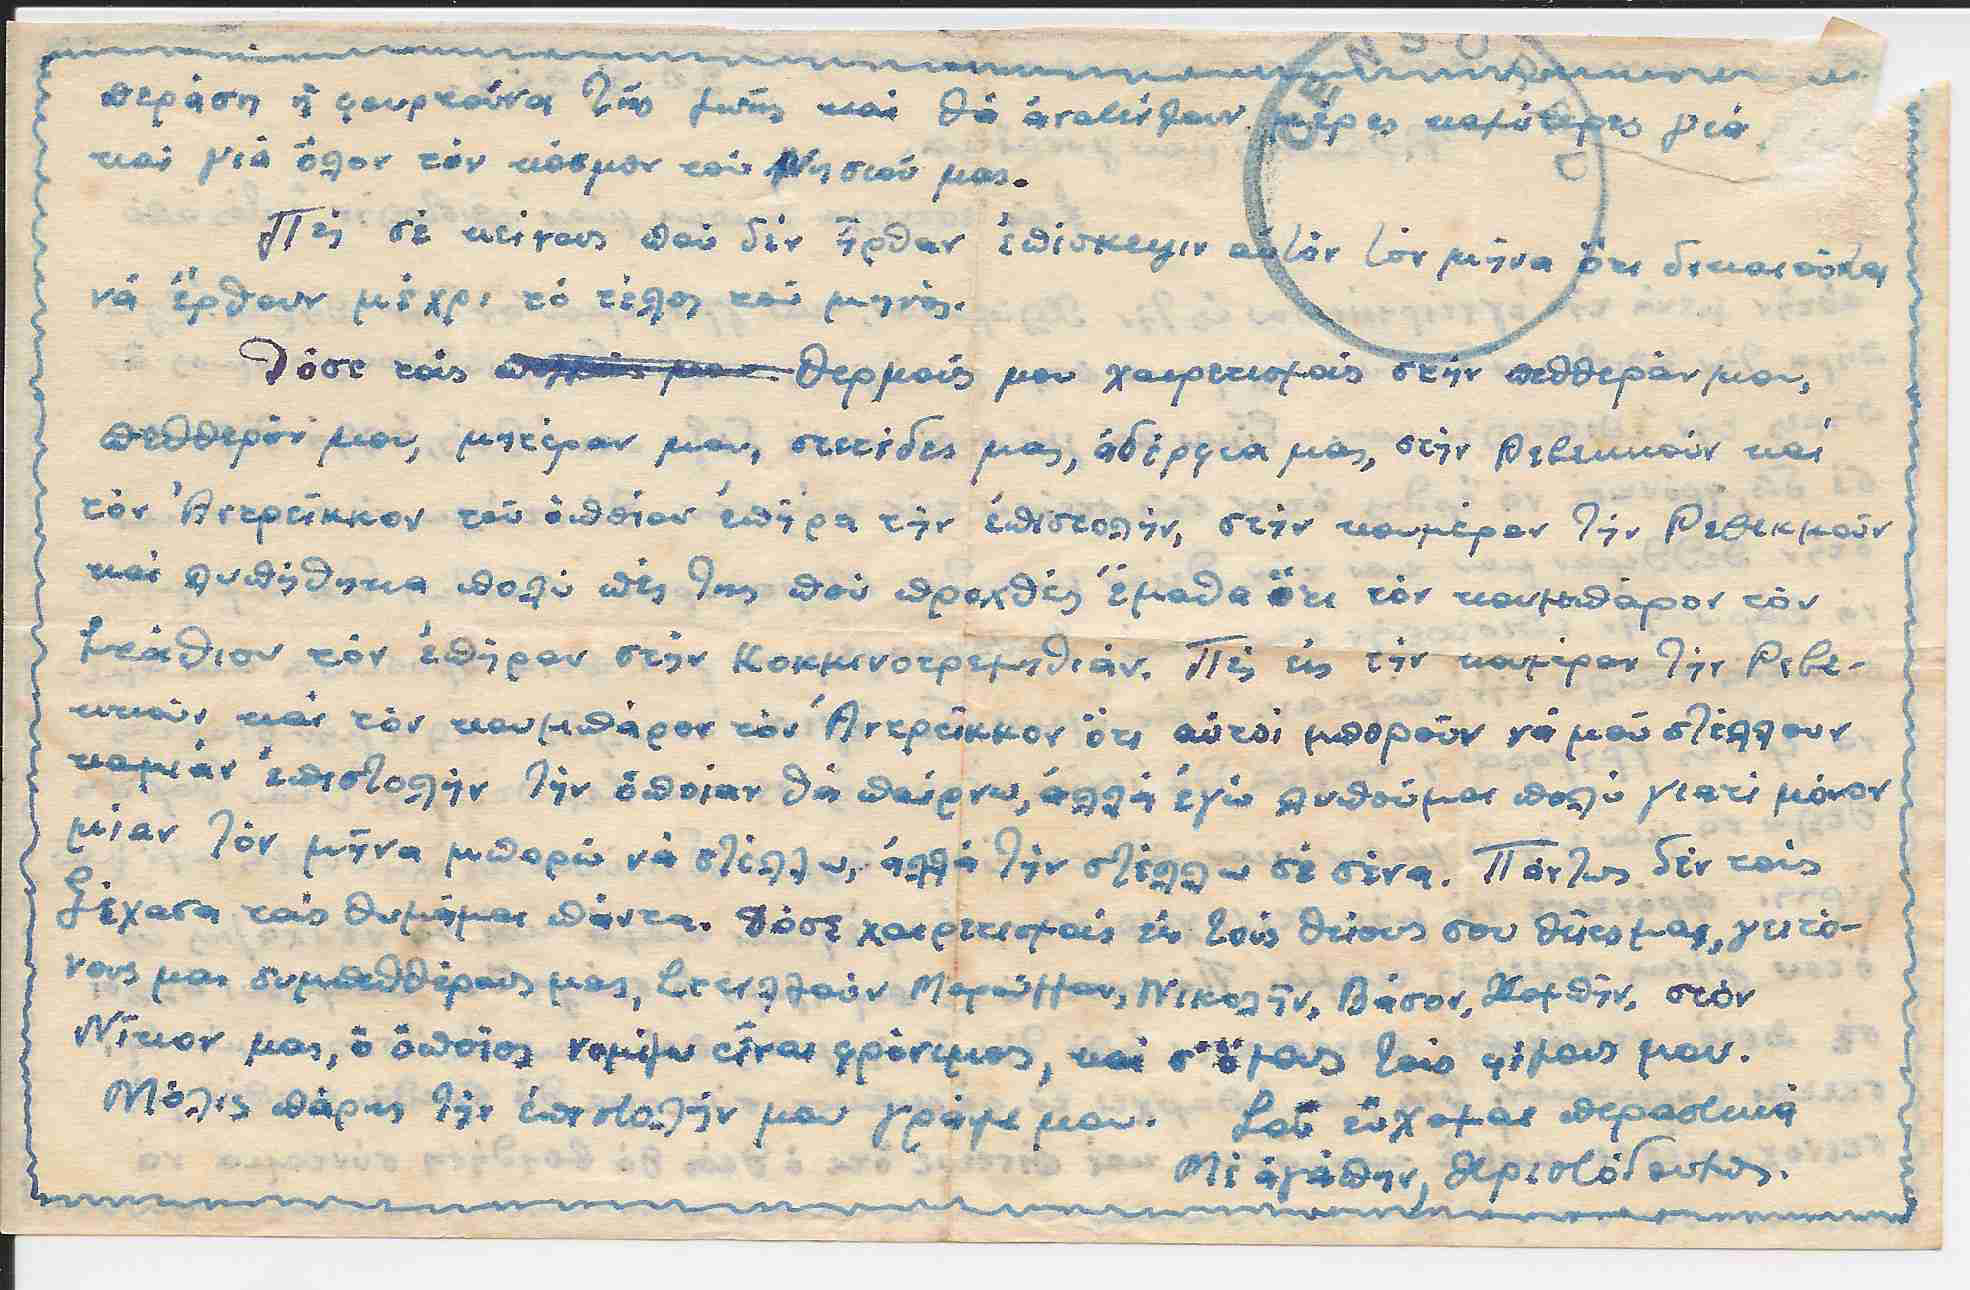 CENSORED
περάση ἡ φουρτούνα τῆς ζωῆς καί θά ἀνατείλουν μέρες καλύτερες γιά
καί γιά ὅλον τόν κόσμον τοῦ Νησιοῦ μας.
Πές σέ κείνους πού δέν ἦρθαν ἐπίσκεψιν αὐτόν τόν μῆνα ὅτι δικαιοῦνται
νά ἔρθουν μέχρι τό τέλος τοῦ μηνός.
Δόσε τούς θερμούς μου χαιρετισμούς στήν πεθθεράν μου,
πεθθερόν μου, μητέραν μου, στετέδες μας, ἀδέρφια μας, στήν Ρεβεκκούν καί
τόν Ἀντρέϊκκον τοῦ ὁποίου ἐπῆρα τήν ἐπιστολήν, στήν κουμέραν τήν Ρεβεκκούν
καί λυπήθηκα πολύ πές της πού προχθές ἔμαθα ὅτι τόν κουμπάρον τόν
Στάθιον τόν ἐπῆραν στήν Κοκκινοτρεμιθιάν. Πές εἰς τήν κουμέραν τήν Ρεβε-
κκούν καί τόν κουμπάρον τόν Ἀντρέϊκκον ὅτι αὐτοί μποροῦν νά μοῦ στέλλουν
καμιάν ἐπιστολήν τήν ὁποίαν θά παίρνω, ἀλλά ἐγώ λυποῦμαι πολύ γιατί μόνον
μίαν τόν μῆνα μπορῶ νά στέλλω, ἀλλά τήν στέλλω σέ σένα. Πάντως δέν τούς
ξέχασα τούς θυμᾶμαι πάντα. Δόσε χαιρετισμούς εἰς τούς θείους σου θεῖες μας, γειτό-
νους μας συμπεθθέρους μας, Στελλούν Μαρούλλαν, Νικολῆν, Βάσον, Χαμπῆν, στόν
Νῖκον μας, ὁ ὁποῖος νομίζω εἶναι φρόνιμος, καί σ' ὅλους τούς φίλους μου.
Μόλις πάρης τήν ἐπιστολήν μου γράψε μου. Σοῦ εὔχομαι περαστικά
Μέ ἀγάπην, Χριστόδουλος.